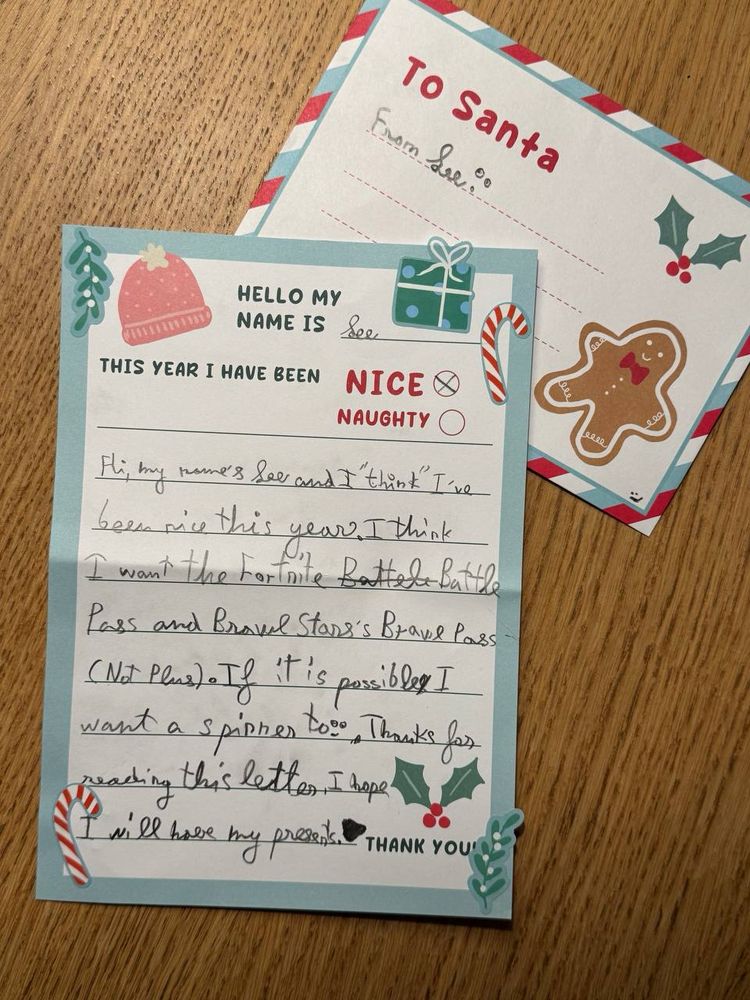 To Santa
From See.
HELLO MY
NAME IS See
THIS YEAR I HAVE BEEN
NICE
NAUGHTY
Hi, my name's See and I "think" I've
been nice this year. I think
I want the Fortnite Battele Battle
Pass and Brawl Stars's Brawl Pass
(Not Plus). If it is possible, I
want a spinner to. Thanks for
reading this letter, I hope
I will have my presents.
THANK YOU!